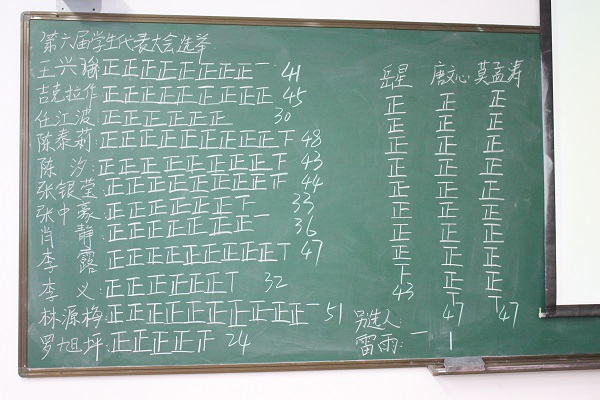 第六届学生代表大会选举
王兴瑜 正正正正正正正正一 41
吉克拉作 正正正正正正正正正 45
任江波 正正正正正正 30
陈泰莉: 正正正正正正正正正下 48
陈汐: 正正正正正正正正下 43
张银莹 正正正正正正正正正 44
张中豪 正正正正正正下 33
肖静 正正正正正正正一 36
李露 正正正正正正正正正丅 47
李义: 正正正正正正丅 32
林源梅: 正正正正正正正正正正一 51
罗旭坪: 正正正正正 24
岳星 正正正正正正正正下 43
唐文心 正正正正正正正正正丅 47
莫孟涛 正正正正正正正正正丅 47
别选人
雷雨: 一 1